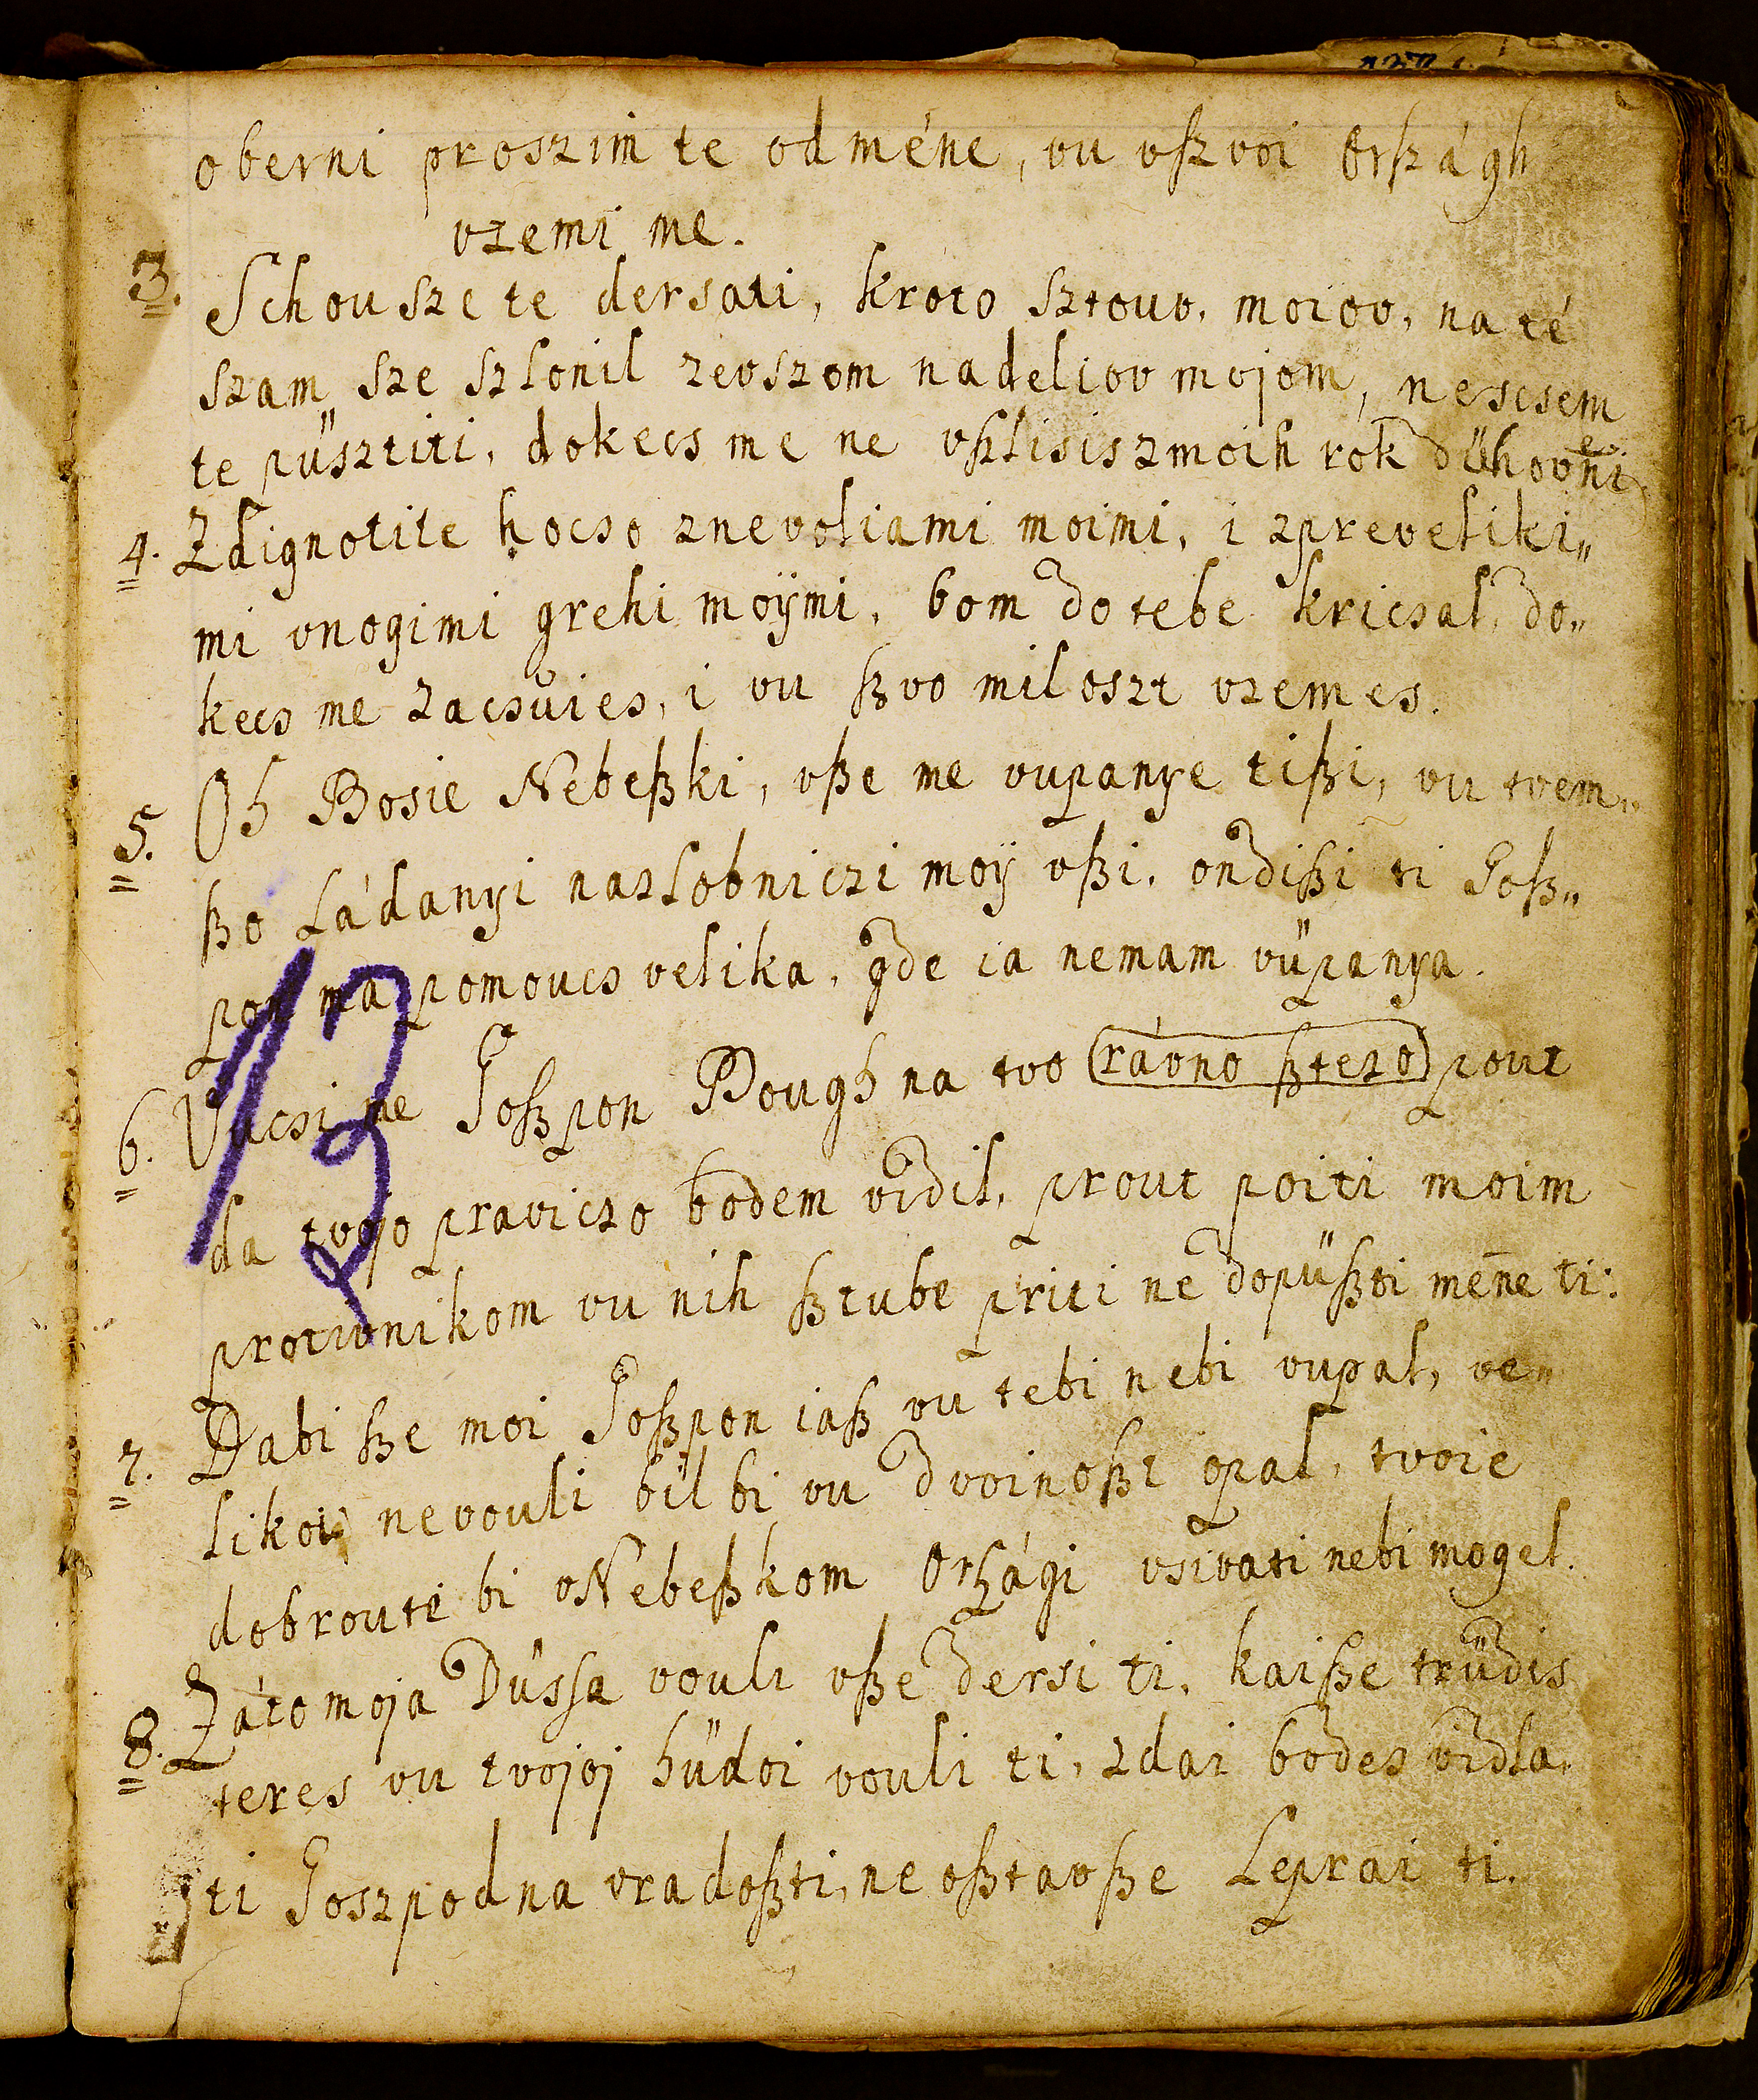 oberni proszim te od méne, vu vßvoi Orßágh
vzemi me.
3. Schousze te dersati, kroto sztouv. moiov, na té
szam sze szlonil zevszom nadeliov mojom, nescsem
te püsztiti, dokecs me ne vßlisis zmoih rok dühovne
4. Zdignotite hocso znevoliami moimi, i zpreveliki„
mi vnogimi grehi moÿmi, bom do tebe kricsal, do„
kecs me zacsűies, i vu ßvo miloszt vzemes.
5. Oh Bosie Nebeßki, vße me vupanye tißi, vu tvem„
ßo Ládanyi nazlobniczi moÿ vßi, ondißi ti Goß„
pon ma pomoucs velika, gde ia nemam vüpanya.
6. Vucsi me Goßpon Bough na tvo rávno ßtezo pout
da tvojo praviczo bodem vidil, prout poiti moim
protivnikom vu nih ßtube priti ne dopüßti mēne ti:
7. Dabi ße moi Goßpon iaß vu tebi nebi vupal, ve„
likoi nevouli bil bi vu dvoinoßt opal, tvoie
dobroute bi vNebeßkom Orßági vsivati nebi mogel.
8. Záto moja Dússa vouli vße dersi ti, kaiße trüdis
teres vu tvojoj hüdoi vouli ti, zdai bodes vidla,
ti Goszpodna vradoßti, ne oßtavße Leprai ti.
13